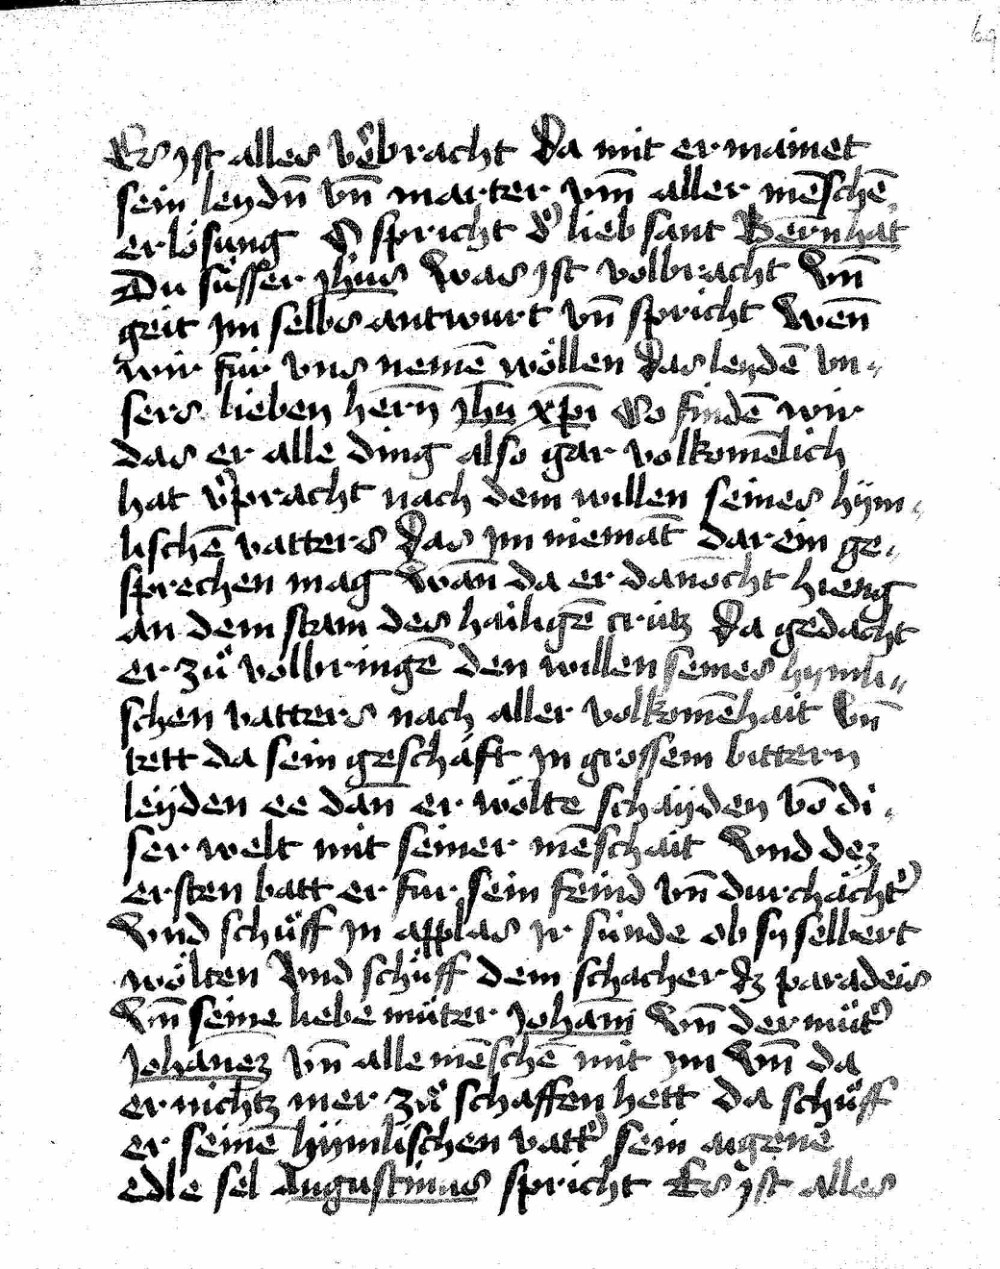 69
Es ist alles v̄bracht Da mit er mainet
sein leydn̄ vn̄ marter vm̄ aller mēschē
erlösung Es spricht d' lieb sant Bernhāt
Du süsser jhūs Was ist volbracht Vn̄
geit im selbs antwurt vn̄ spricht Wen̄
wir für vns nemē wöllen das leydē vn-
sers lieben hern̄ jhū xp̄i So findē wir
das er alle ding also gar volkomēlich
hat v'pracht nach dem willen seines hÿm-
lischē vatters Das im niemāt darein ge-
sprechen mag Wan̄ da er danōcht hieng
an dem stam des hailigē crütz Da gedacht
er zů volbringē den willen seines hymli-
schen vatters nach aller volkomēhait Vn̄
tett da sein geschäft in grossem bittern
leÿden ee dan̄ er wölte schaÿden vō di-
ser welt mit seiner mēschait Vnd dez
ersten batt er fur sein feind vn̄ durchächt'
Vnd schůff in applas ir sünde ob sy selbert
wölten Vnd schůff dem schacher dz paradeis
Vn̄ seine liebe můter Johan̄i Vn̄ der můt'
Johānez Vn̄ alle mēschē mit im Vn̄ da
er nichtz mer zů schaffen hett Da schůff
er seinē hÿmlischen vatt' sein aigene
edle sel Augustinus spricht Es ist alles